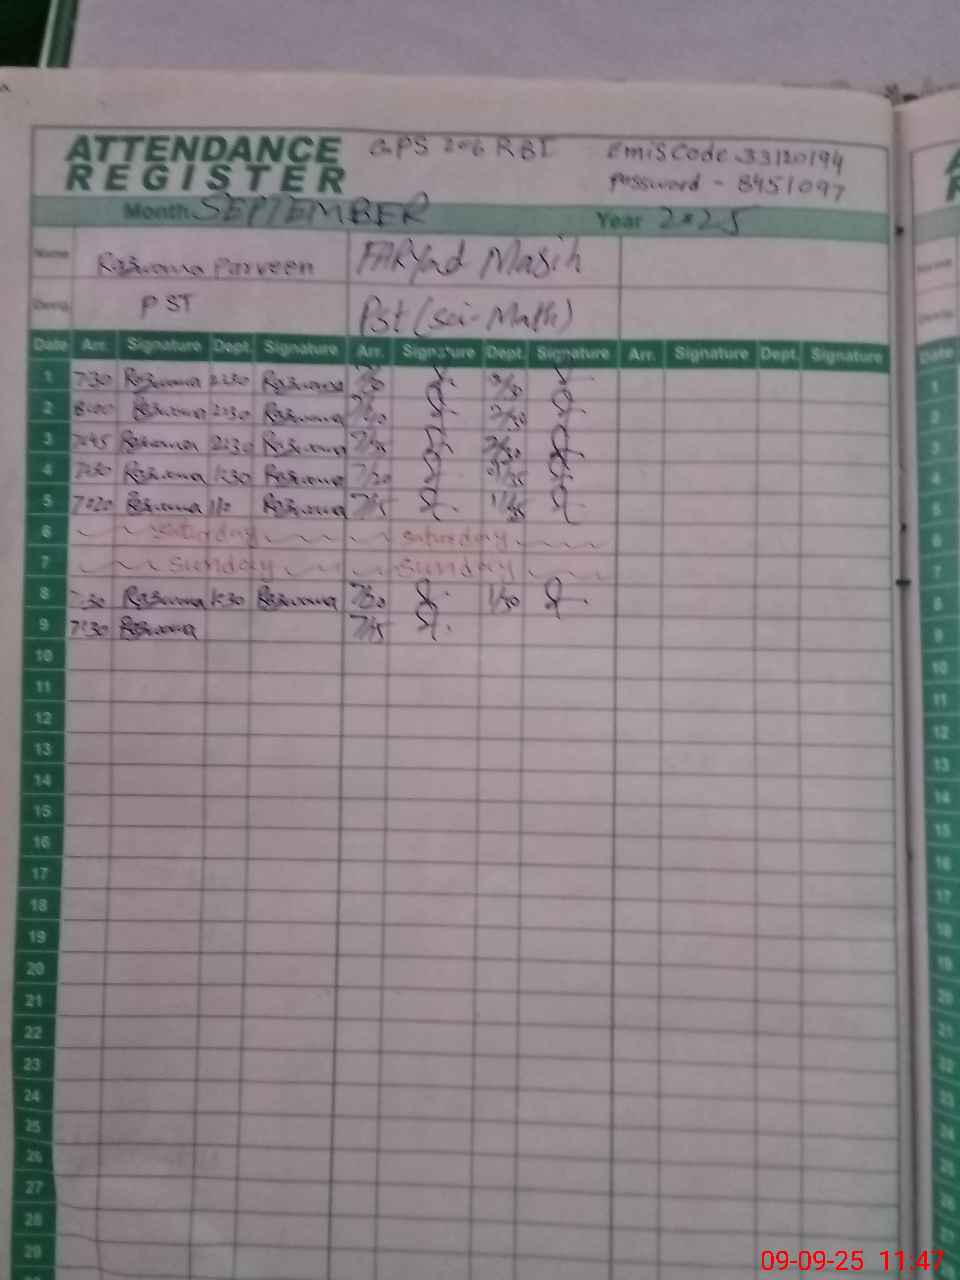 ATTENDANCE
REGISTER
GPS 206 RBI
Emis Code 33120194
Password - 8451097
Month SEPTEMBER Year 2025
Name Razwana Parveen FARYad Masih
PST Pst (sci-Math)
Date Arr. Signature Dept. Signature Arr. Signature Dept. Signature Arr. Signature Dept. Signature
1 7:30 Razwana 2:30 Razwana
2 8:00 Razwana 2:30 Razwana
3 7:45 Razwana 2:30 Razwana
4 7:30 Razwana 1:30 Razwana 7/20
5 7:20 Razwana Razwana 7/15
6 saturday saturday
7 sunday sunday
8 7:30 Razwana 1:30 Razwana 7/30 1/30
9 7:30 Razwana 7/15
10
11
12
13
14
15
16
17
18
19
20
21
22
23
24
25
26
27
28
29
09-09-25 11:47